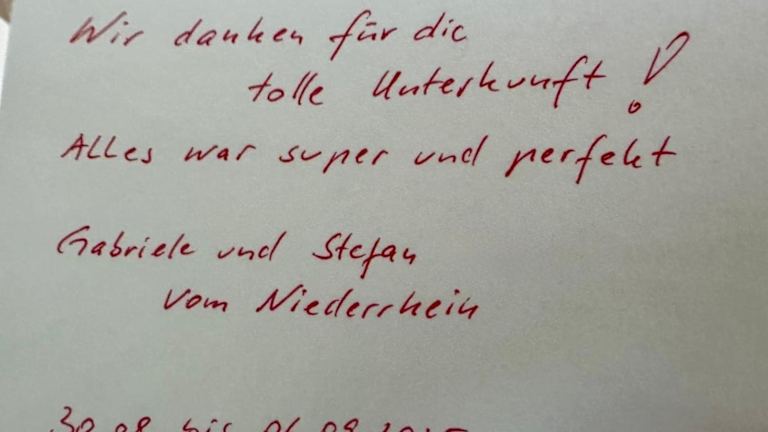 Wir danken für die
tolle Unterkunft!
Alles war super und perfekt
Gabriele und Stefan
vom Niederrhein
30.08 bis